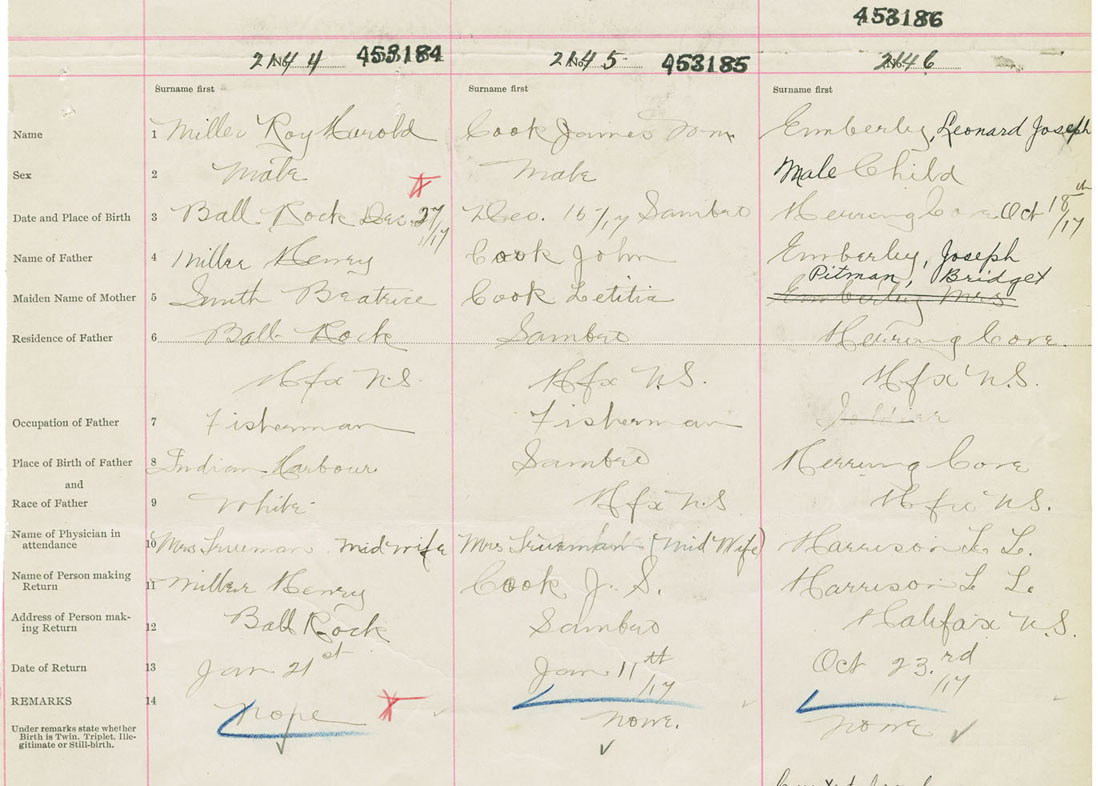 453186
2144 453184 2145 453185 2146
Surname first Surname first Surname first
Name 1 Miller Roy Harold Cook James Wm. Emberley, Leonard Joseph
Sex 2 Male Male Male Child
Date and Place of Birth 3 Ball Rock Dec 27/17 Dec. 15/17 Sambro Herring Cove Oct 18th/17
Name of Father 4 Miller Henry Cook John Emberley, Joseph
Pitman, Bridget
Maiden Name of Mother 5 Smith Beatrice Cook Letitia Emberley Mrs
Residence of Father 6 Ball Rock Sambro Herring Cove.
Hfx N.S. Hfx N.S. Hfx N.S.
Occupation of Father 7 Fisherman Fisherman Soldier
Place of Birth of Father 8 Indian Harbour Sambro Herring Cove
and
Race of Father 9 White Hfx N.S Hfx N.S.
Name of Physician in
attendance 10 Mrs Midwife Mrs (Mid Wife) Harrison L L.
Name of Person making
Return 11 Miller Henry Cook J. S. Harrison L L.
Address of Person mak-
ing Return 12 Ball Rock Sambro Halifax N.S.
Date of Return 13 Jan 21st Jan 11th/17 Oct 23rd/17
REMARKS 14 none none. none
Under remarks state whether
Birth is Twin, Triplet, Ille-
gitimate or Still-birth.